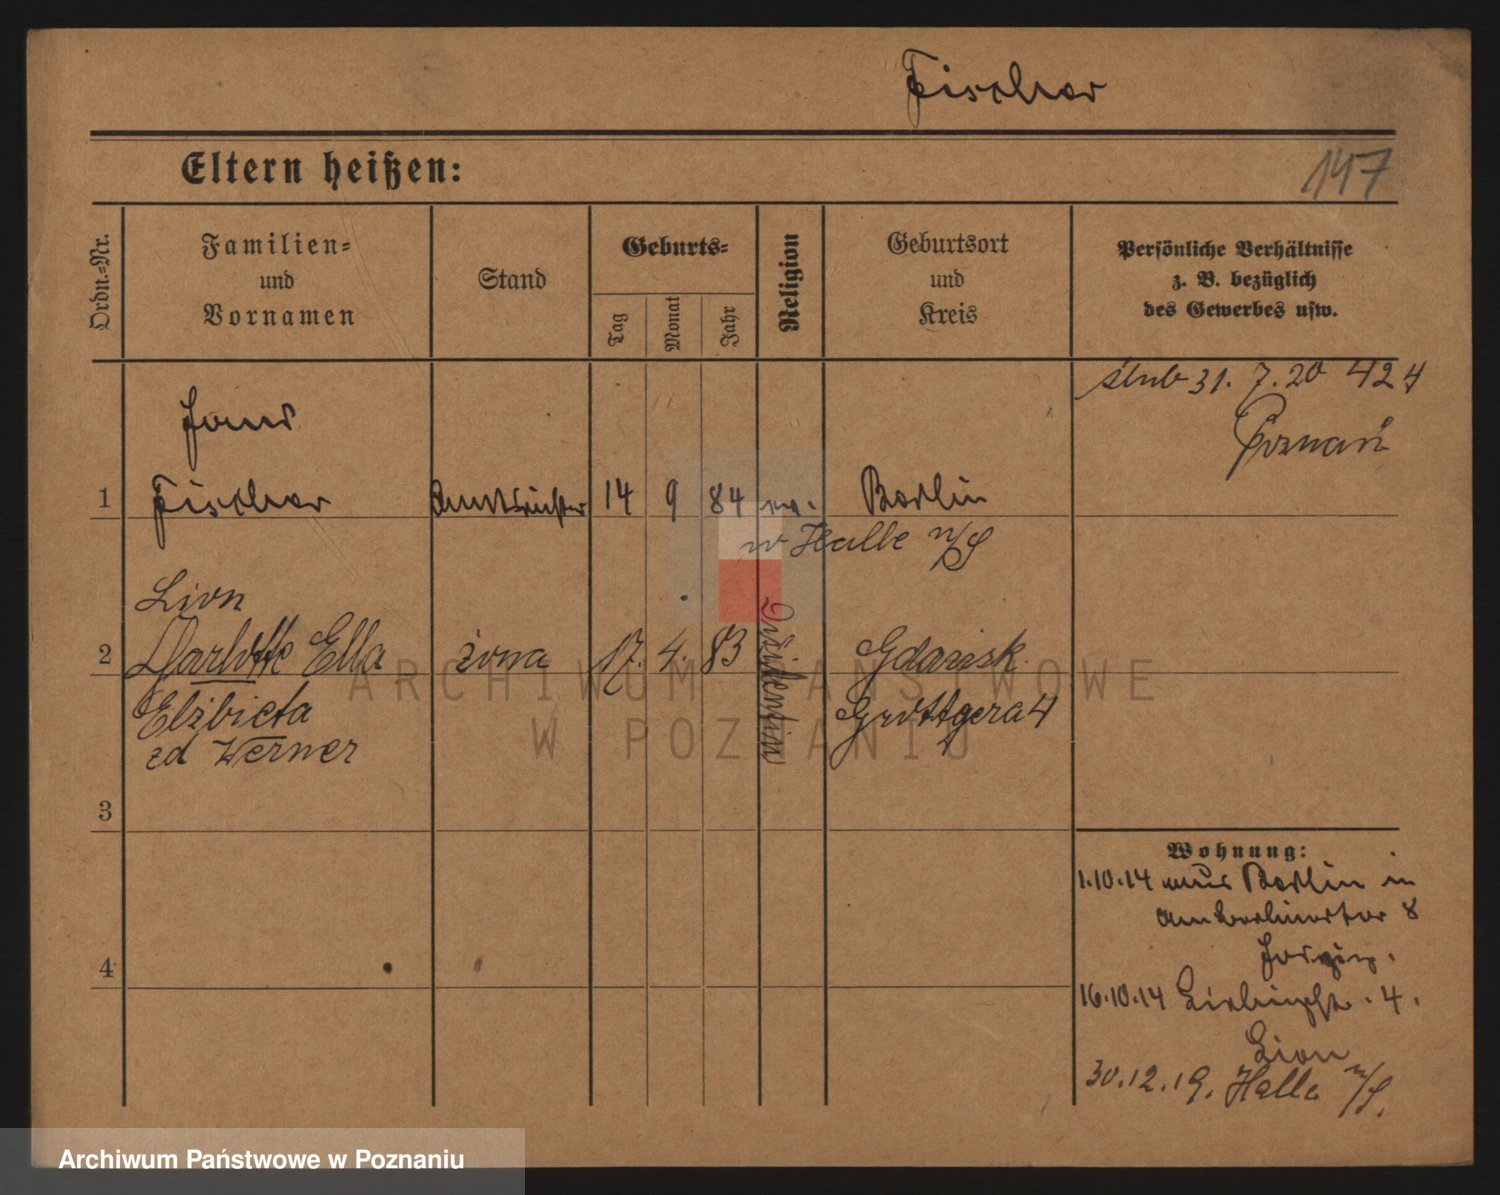 Fischer
Eltern heißen:
147
Ordn.=Nr.
Familien=
und
Vornamen
Stand
Geburts=
Tag
Monat
Jahr
Religion
Geburtsort
und
Kreis
Persönliche Verhältnisse
z. B. bezüglich
des Gewerbes usw.
ślub 31. 7. 20 424
Poznań
Hans
1 Fischer Amtsrichter 14 9 84 Berlin
w Halle n/S
Lion
2 Charlotte Ella żona 17. 4. 83 Dissidentin Gdańsk
Elżbieta Grottgera 4
zd Werner
3
Wohnung:
1.10.14 aus Berlin in
Am Berlinertor 8
4
16.10.14 4.
Lion
30.12.19. Halle n/S.
ARCHIWUM PAŃSTWOWE
W POZNANIU
Archiwum Państwowe w Poznaniu